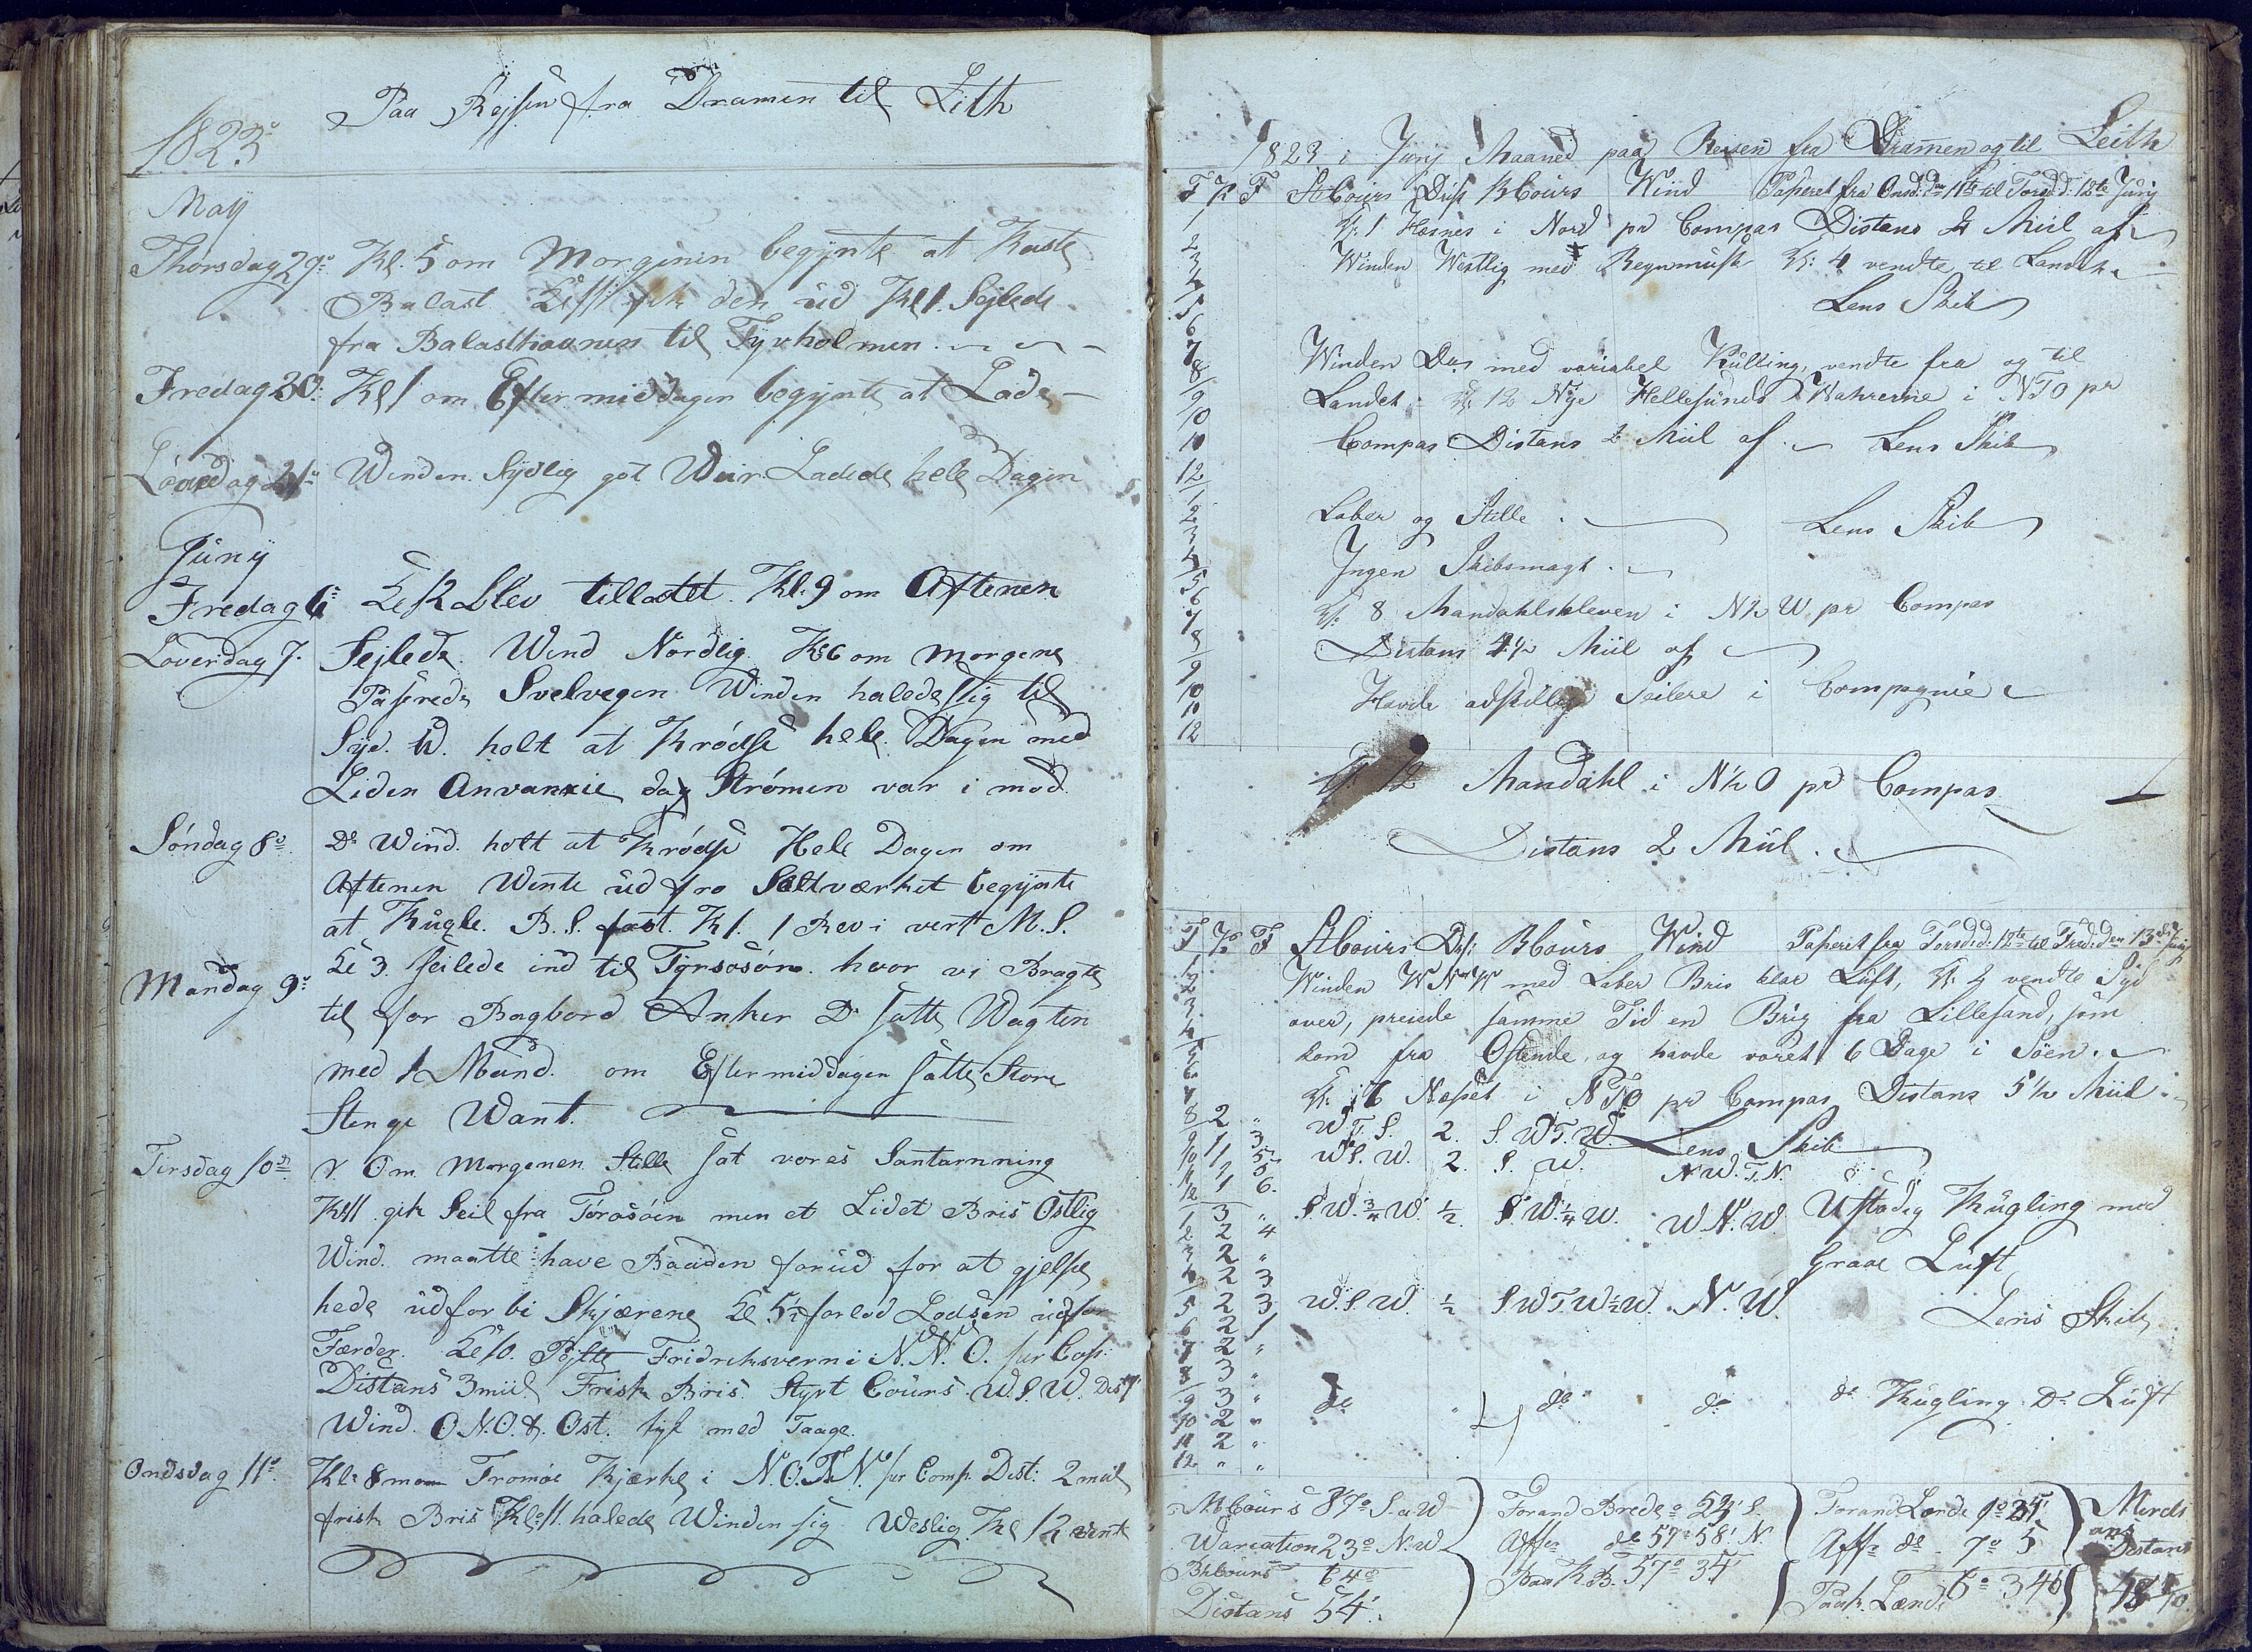 Paa Rejsen fra Dramen til Lith
1823
May
Thorsdag 29. Kl. 5 om Morgenen begynte at Kaste
Balast Kl 11 fik den ud Kl 1. Sejlede
fra Balasthavnen til Tyvholmen.
Fredag 30. Kl 1 om Eftermiddagen begynte at Lade
Lóverdag 31. Winden Sydlig got Weir Ladede hele Dagen
Juny
Fredag 6 Blev tilladet Kl: 9 om Aftenen
Loverdag 7. Sejlede Wind Nordlig Kl 6 om Morgene
Passerede Svelvegen Winden halede sig til
Syd. W. holt at Krødse hele Dagen med
Liden Anvancie da Strómen var i mod
Sóndag 8 D° Wind holt at Krødse Hele Dagen om
Aftenen Wente ud fra Saltværket begynte
at Kugle. B. S. fast. Kl. 1 Rev i vert M. S.
Mandag 9. Kl 3. seilede ind til hvor vi Bragte
til for Bagbord Anker D° satte Wagten
med 1 Mand. om Eftermiddagen satte Store
Stenge Want.
Tirsdag 10 Om Morgenen Stille sat vores
Kl 11 gik Seil fra men et Lidet Bris Ostlig
Wind. maatte have Baaden forud for at gjelpe
hede udforbi Skjærene Kl 5½ forlod Lodsen udfor
Færder. Kl 10. Fridrehsvern i N.N.O.
Distans 3 miil Frisk Bris. Styrt Cours W.S.W.
Wind. O.N.O. & Ost. tyk med Taage.
Ondsdag 11 Kl 8 Tromóe Kjærke i N.O.T.N. pr Comp. Dist: 2 miil
frisk Bris Kl 11 halede Winden sig Weslig Kl 12 vente
1823 i Juny Maaned paa Reisen fra Dramen og til Leith
T K F St Cours Dist B Cours Wind Passeret fra Onsd: d: 11te til Torsd: d: 12te Juny
1
2 Kl: 1 Hæsnes i Nord pr Compas Distans 2 Miil af
3 Winden Westlig med Regnmusk Kl: 4 vendte til Landet
4
5 Lens Skib
6
7 Winden Do med variabel Kulling, vendte fra og til
8
9 Landet Kl: 12 Nye Hellesunds i NTO pr
10
11 Compas Distans 2 Miil af. Lens Skib
12
1
2 Laber og Stille. Lens Skib
3
4 Ingen Skibsmagt.
5
6 Kl: 8 Mandahlskleven i N½W pr Compas
7
8 Distans 2½ Miil af
9
10 Havde adskillige Seilere i Compagnie
11
12
Kl: 12 Mandahl i N½O pr Compas
Distans 2 Miil.
T K F St Cours Dist: B Cours Wind Passeret fra Torsd: d: 12te til Fred: den 13de Juny
1 Winden WNW med Laber Bris klar Luft, Kl: 2 vendte Syd
2
3 over, preiede samme Tid en Brig fra Lillesand, som
4
5 kom fra Ostende, og havde været 6 Dage i Søen.
6
7 Kl: 6 Næsset i NTO pr Compas Distans 5½ Miil
8 2 " W.T.S. 2. S.W.T.W. Lens Skib
9 1 3
10 1 5 W.S.W. 2. S.W. N.W.T.N.
11 1 5
12 1 6.
1 3 " S.W.¾W. ½ S.W.¼W. W.N.W. Ustadig Kugling med
2 2 4
3 2 " Graae Luft
4 2 3
5 2 3 W.S.W. ½ S.W.T.W½W. N.W. Lens Skib
6 2 1
7 2 "
8 3 "
9 3 " do do do do Kugling D° Luft
10 2 "
11 2 "
12 " "
M Cours 87° S. a W Forand Brede 23' S. Forand Lænde 0° 34' Merdi
Wariation 23° N.W. Aff do 57° 58' N. Aff do 7° 5 ans Distans
Bh Cours 64° Paa K.B. 57° 35' Paak. Lænde 6° 34
Distans 54'.